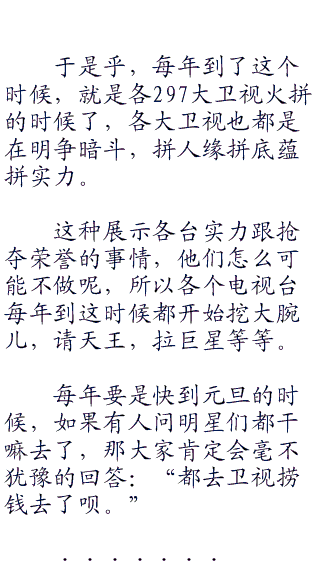 于是乎，每年到了这个
时候，就是各297大卫视火拼
的时候了，各大卫视也都是
在明争暗斗，拼人缘拼底蕴
拼实力。
这种展示各台实力跟抢
夺荣誉的事情，他们怎么可
能不做呢，所以各个电视台
每年到这时候都开始挖大腕
儿，请天王，拉巨星等等。
每年要是快到元旦的时
候，如果有人问明星们都干
嘛去了，那大家肯定会毫不
犹豫的回答：“都去卫视捞
钱去了呗。”
．．．．．．．